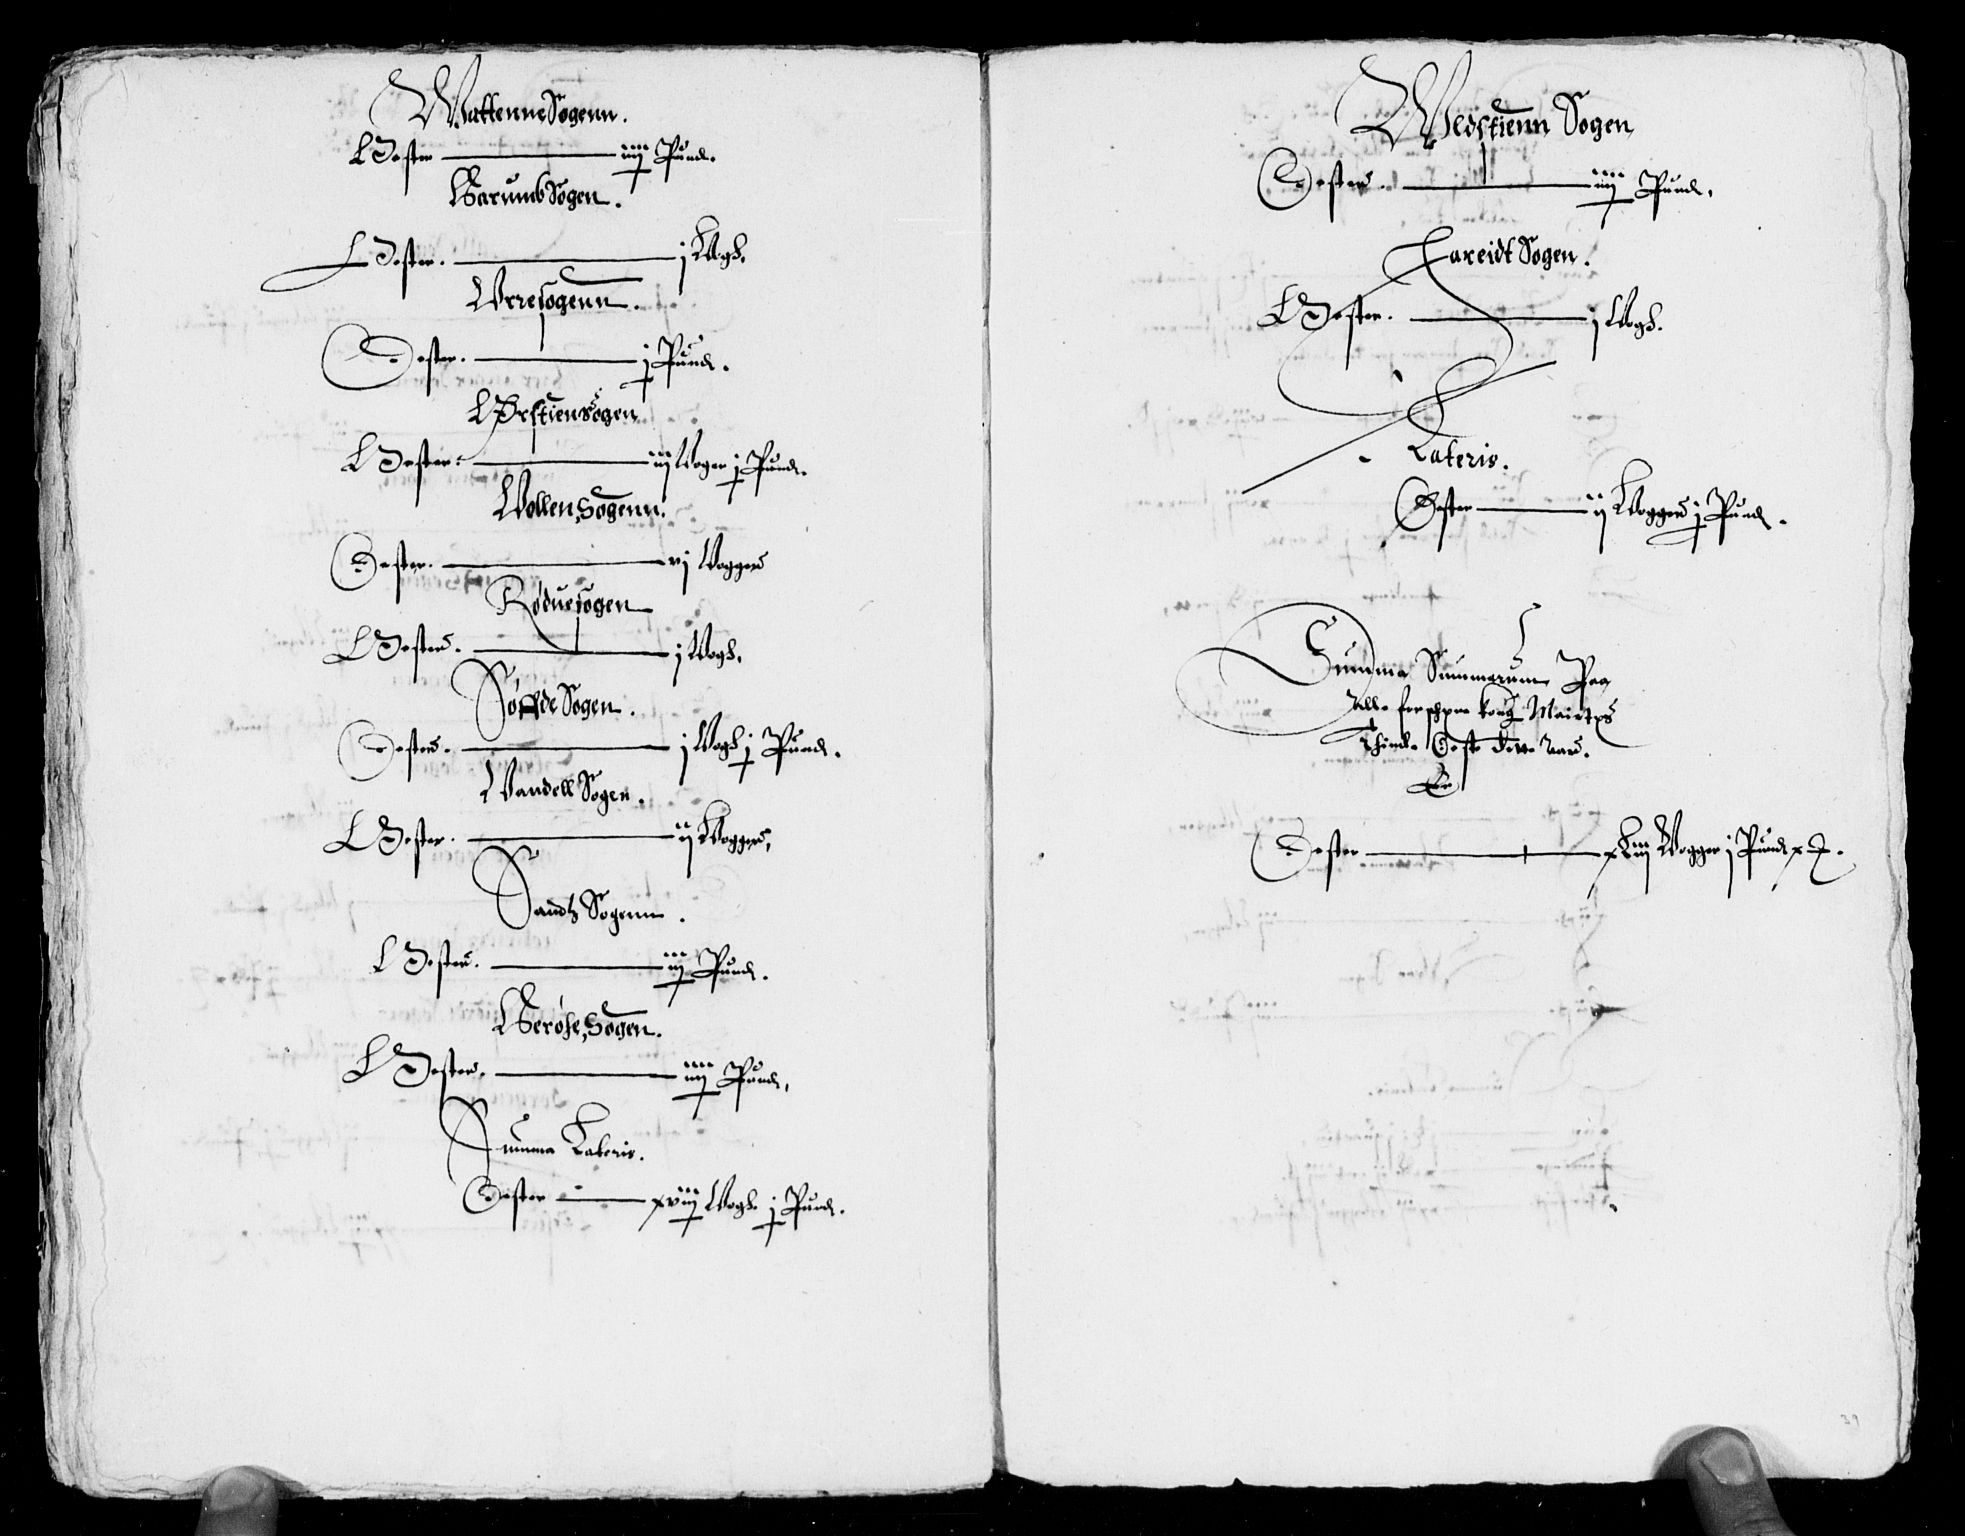 Wattenne Sogenn.
Oster iiij Pund.
Barumb Sogen.
Oster. j Wogh.
Wrresogenn.
Oster. j Pund.
Ørstiensogen
Oster. iij Woger j Pund.
Wollen Sogenn.
Oster. vj Wogger
Røduesogen
Oster. j Wogh.
Sogen.
Oster. j Wogh j Pund.
Wandell Sogen.
Oster. ij Wogger.
Sandtz Sogenn.
Oster. iij Pund.
Herøhe Sogen.
Oster. iiij Pund.
Summa Lateris.
Oster xviij Wogh. j Pund.
Sogen
Oster. iiij Pund.
Hareidt Sogen.
Oster. j Wogh.
Lateris.
Oster ij Wogger j Pund.
Summa Summarum Paa
Alle kong
Oste Aar.
Er
Oster xLiij Wogger j Pund
39